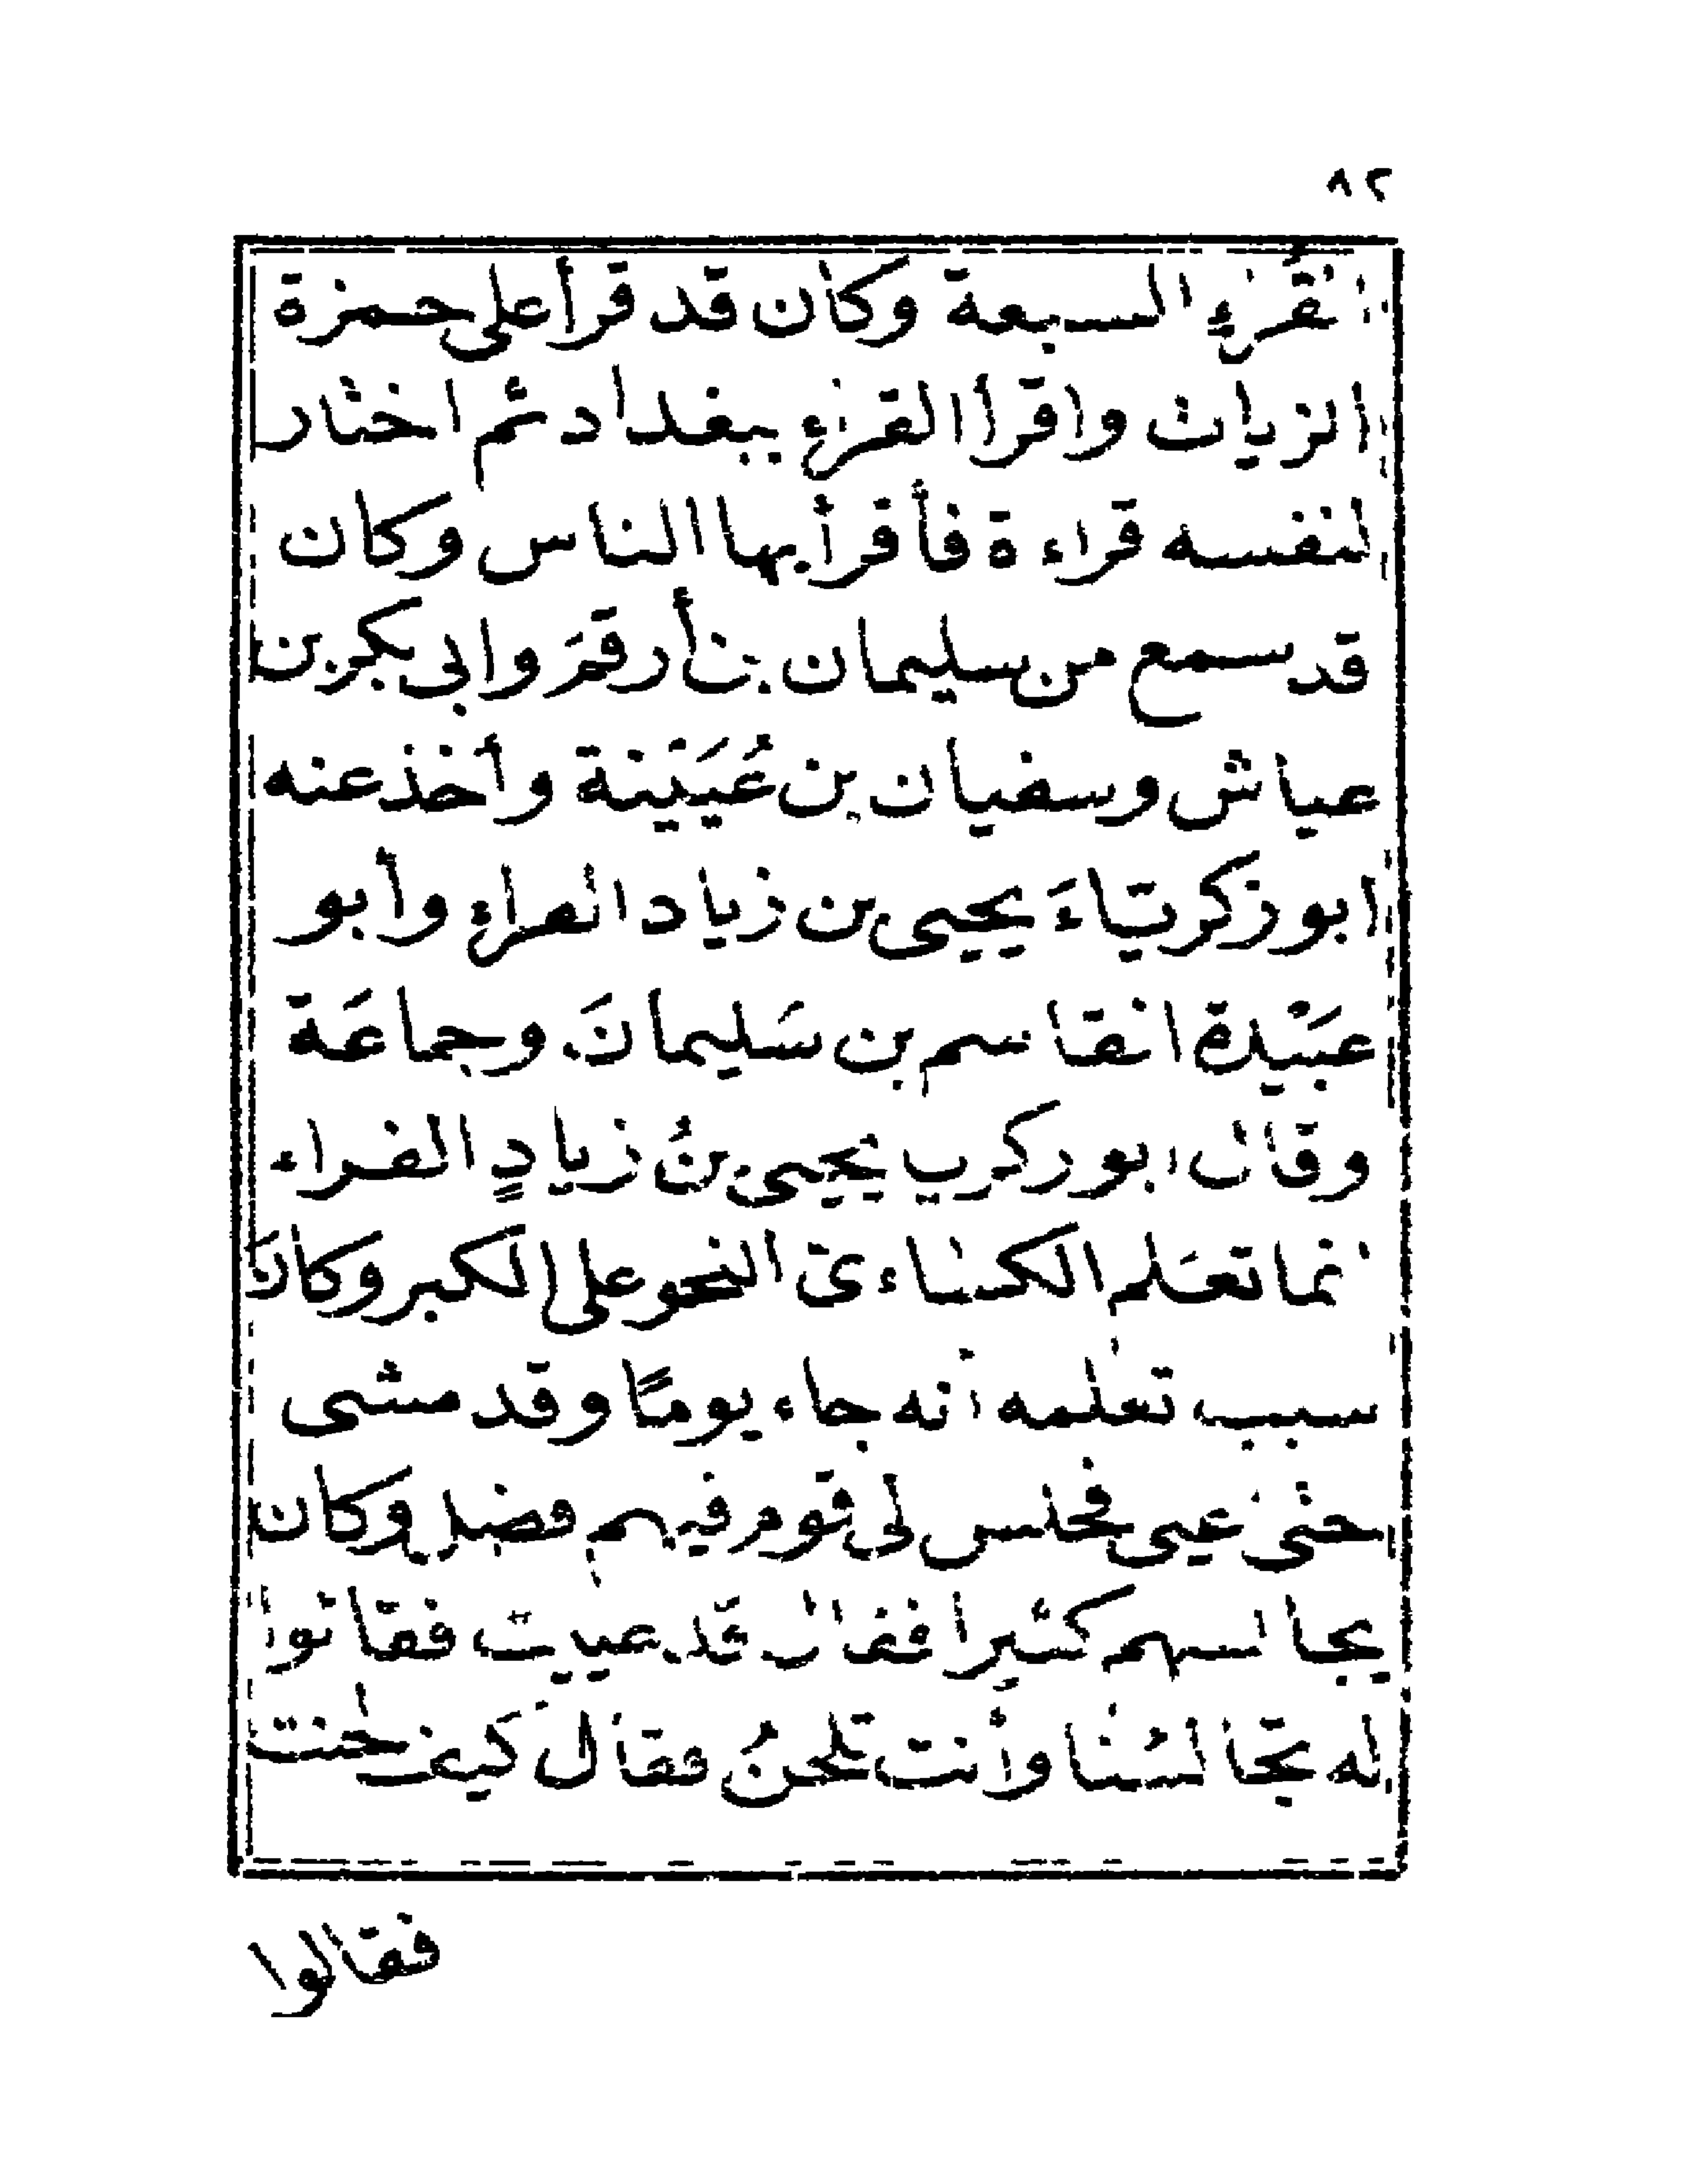 ٨٢
القُراءِ السبعة وكان قد قرأ على حمزة
الزيات واقرأ القراء ببغداد ثم اختار
لنفسه قراءة فأقرأ بها الناس وكان
قد سمع من سليمان بن أرقمَ وابي بكر بن
عياش وسفيان بن عُيَيْنة وأخذ عنه
ابو زكريّاءَ يحيى بن زياد الفراء وأبو
عبَيْدة القاسم بن سَليمانَ وجماعَة
وقال ابو زكريا يحيى بنُ زيادٍ الفراء
انما تعَلم الكساءى النحو على الكبر وكانَ
سبب تعلمه أنه جاء يومًا وقد مشى
حتى عيى فجلس الى قوم فيهم فضل وكان
يجالسهم كثيرا فقال قد عييت فقالوا
له تجالسُنا وأنت تلحنُ فقال كيف لحنت
فقالوا